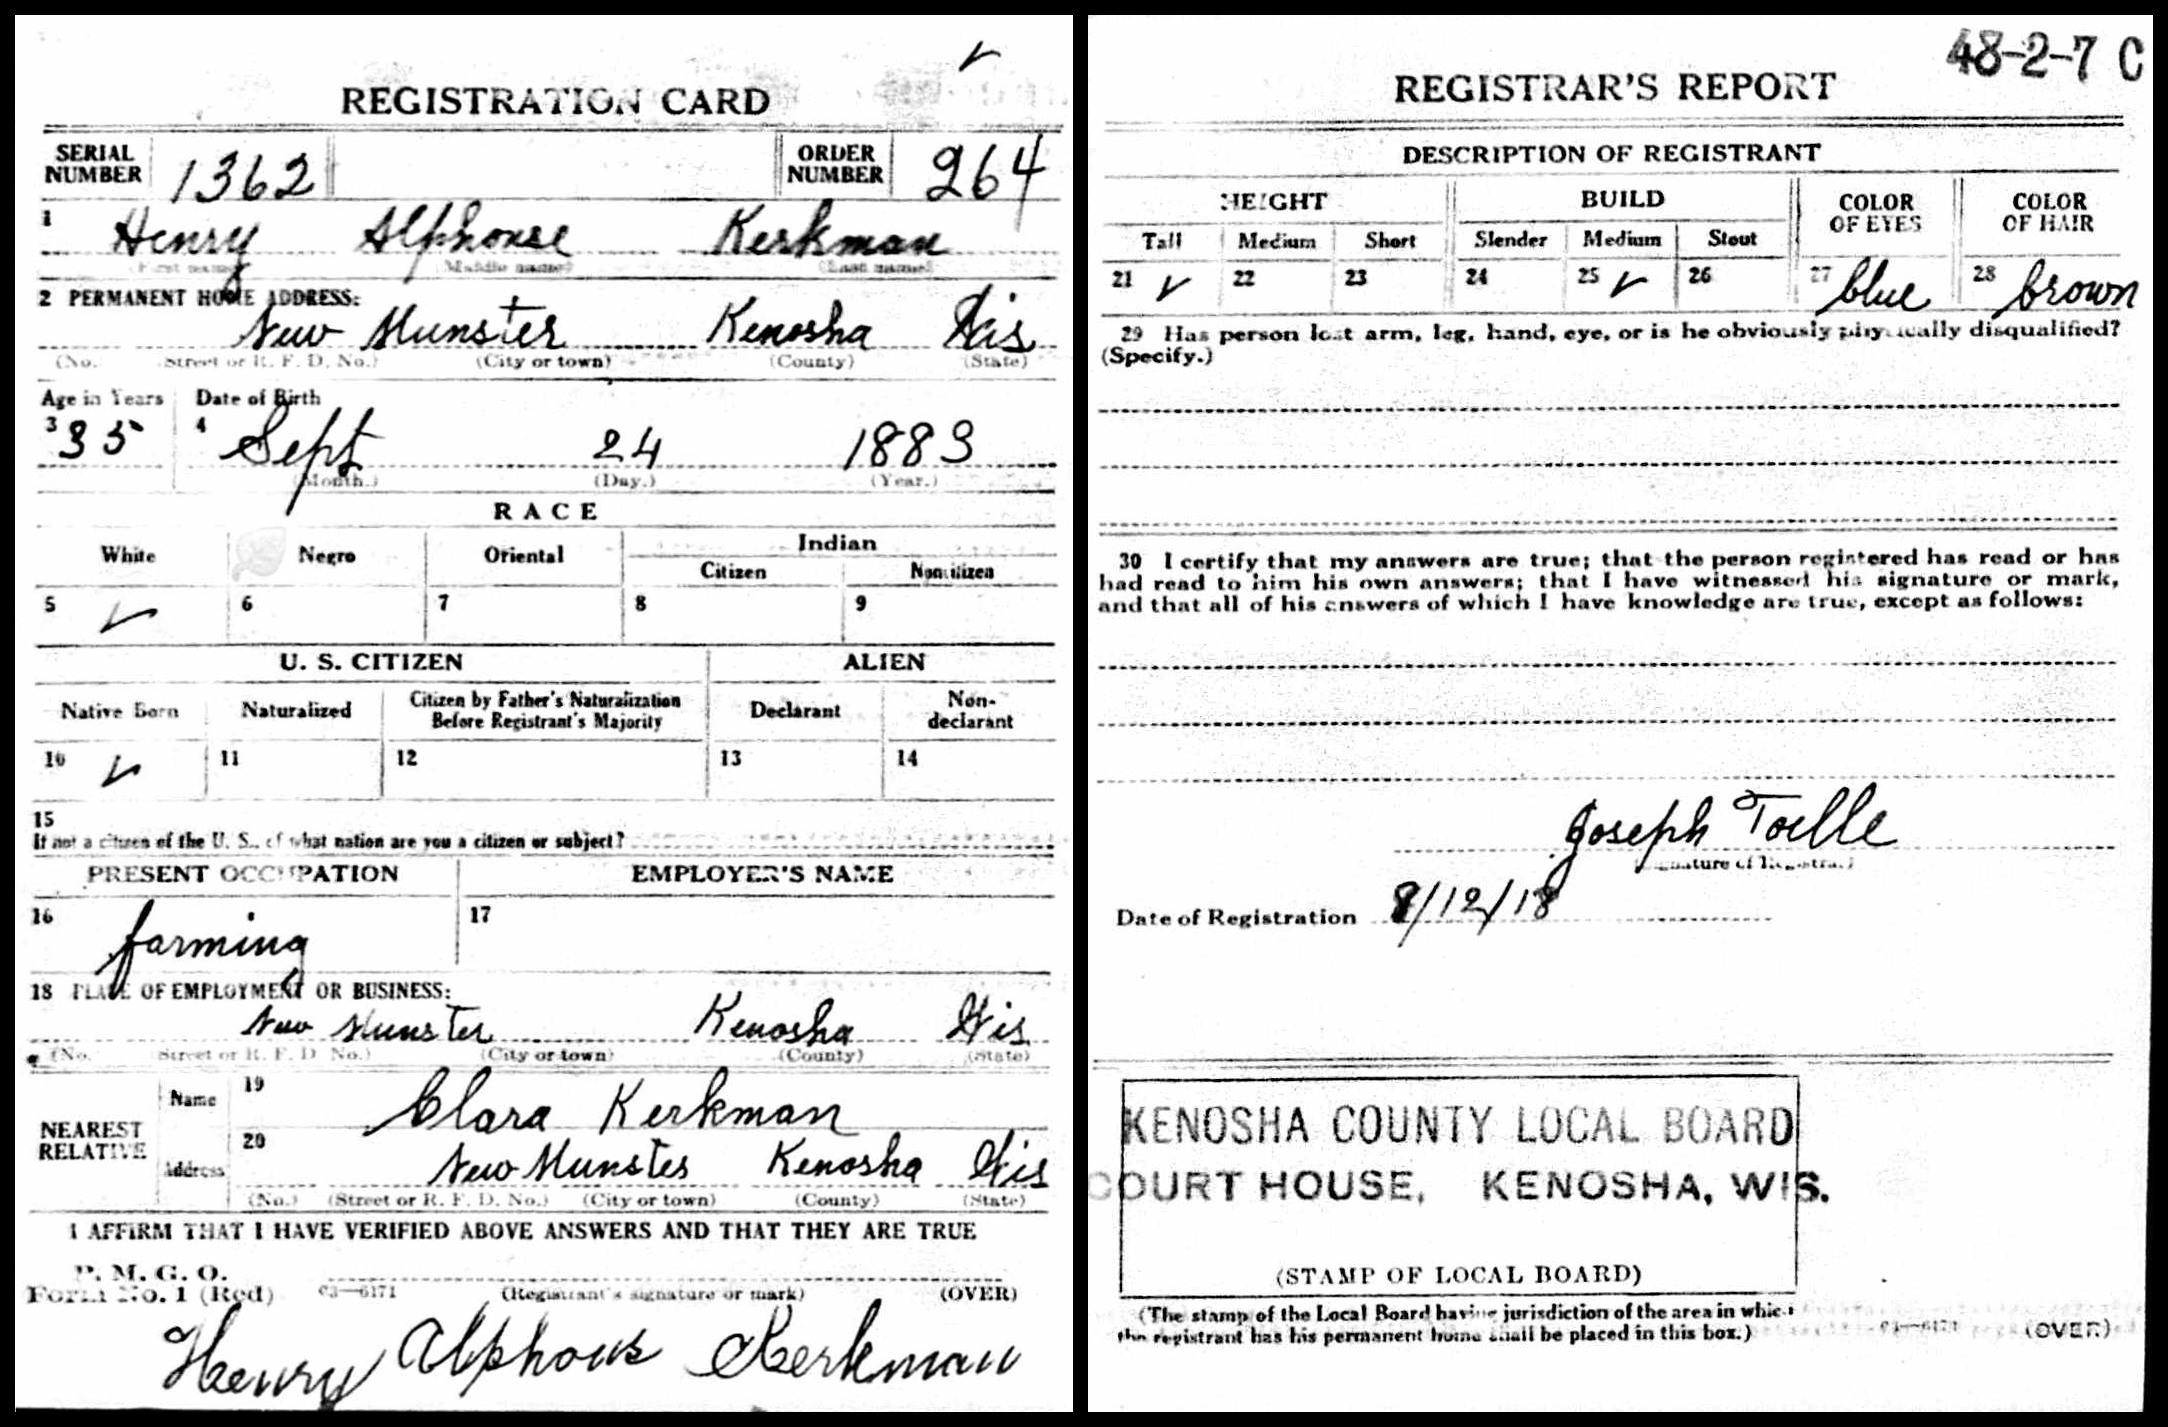 REGISTRATION CARD
SERIAL NUMBER 1362 ORDER NUMBER 264
1 Henry Alphonse Kerkman
(First name) (Middle name) (Last name)
2 PERMANENT HOME ADDRESS:
New Munster Kenosha Wis
(No. Street or R. F. D. No.) (City or town) (County) (State)
Age in Years Date of Birth
3 35 4 Sept 24 1883
(Month.) (Day.) (Year.)
RACE
White Negro Oriental Indian
Citizen Noncitizen
5 ✓ 6 7 8 9
U. S. CITIZEN ALIEN
Native Born Naturalized Citizen by Father's Naturalization Before Registrant's Majority Declarant Non-declarant
10 ✓ 11 12 13 14
15
If not a citizen of the U. S., of what nation are you a citizen or subject?
PRESENT OCCUPATION EMPLOYER'S NAME
16 farming 17
18 PLACE OF EMPLOYMENT OR BUSINESS:
New Munster Kenosha Wis
(No. Street or R. F. D. No.) (City or town) (County) (State)
NEAREST RELATIVE
Name 19 Clara Kerkman
Address 20 New Munster Kenosha Wis
(No.) (Street or R. F. D. No.) (City or town) (County) (State)
I AFFIRM THAT I HAVE VERIFIED ABOVE ANSWERS AND THAT THEY ARE TRUE
P. M. G. O.
Form No. 1 (Red) 03—6171 (Registrant's signature or mark) (OVER)
Henry Alphons Kerkman
48-2-7 C
REGISTRAR'S REPORT
DESCRIPTION OF REGISTRANT
HEIGHT BUILD COLOR OF EYES COLOR OF HAIR
Tall Medium Short Slender Medium Stout
21 ✓ 22 23 24 25 ✓ 26 27 blue 28 brown
29 Has person lost arm, leg, hand, eye, or is he obviously physically disqualified?
(Specify.)
30 I certify that my answers are true; that the person registered has read or has
had read to him his own answers; that I have witnessed his signature or mark,
and that all of his answers of which I have knowledge are true, except as follows:
Joseph Toelle
(Signature of Registrar)
Date of Registration 9/12/18
KENOSHA COUNTY LOCAL BOARD
COURT HOUSE, KENOSHA, WIS.
(STAMP OF LOCAL BOARD)
(The stamp of the Local Board having jurisdiction of the area in which
the registrant has his permanent home shall be placed in this box.)
03—6171 (OVER)